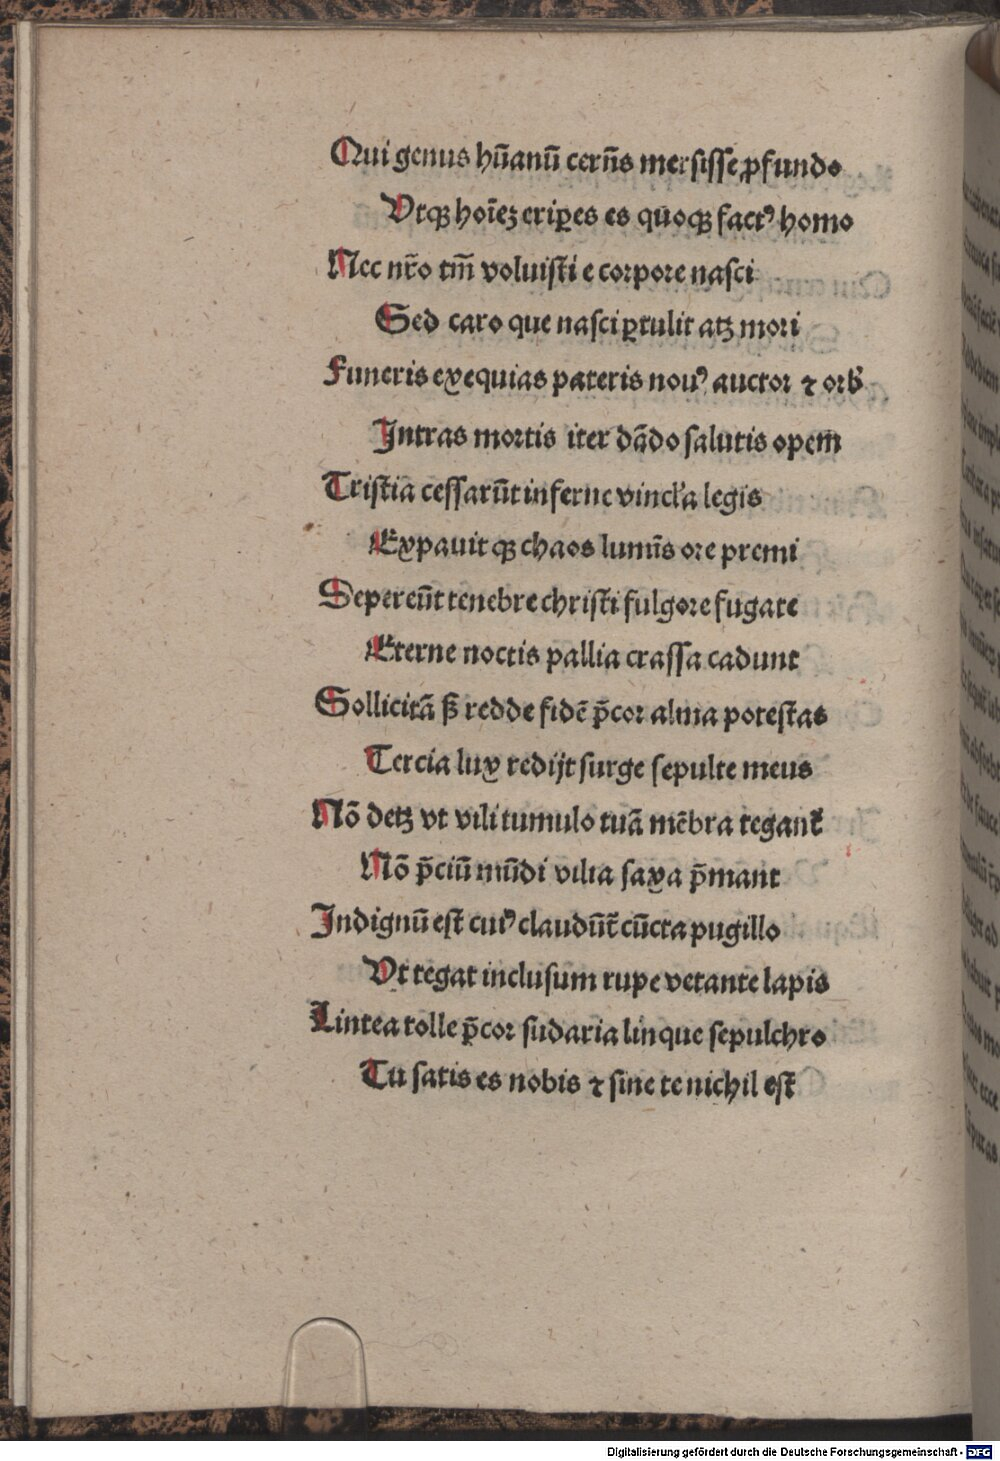 Qui genus hūanū cerñs mersisse ꝓfundo
Vtqꝫ hoīeꝫ eriꝑes es quoqꝫ factꝰ homo
Nec nr̃o tm̄ voluisti e corpore nasci
Sed caro que nasci ꝑtulit atꝫ mori
Funeris exequias pateris nouꝰ auctor ⁊ orbꝭ
Intras mortis iter dādo salutis opem
Tristia cessarūt inferne vincl'a legis
Expauit qꝫ chaos lumīs ore premi
Depereūt tenebre christi fulgore fugate
Eterne noctis pallia crassa cadunt
Sollicitā ß redde fidē p̄cor alma potestas
Tercia lux redijt surge sepulte meus
Nō detꝫ vt vili tumulo tuā mēbra tegant᷑
Nō p̄ciū mūdi vilia saxa p̄mant
Indignū est cuiꝰ claudūt᷑ cūcta pugillo
Vt tegat inclusum rupe vetante lapis
Lintea tolle p̄cor sudaria linque sepulchro
Tu satis es nobis ⁊ sine te nichil est
Digitalisierung gefördert durch die Deutsche Forschungsgemeinschaft - DFG